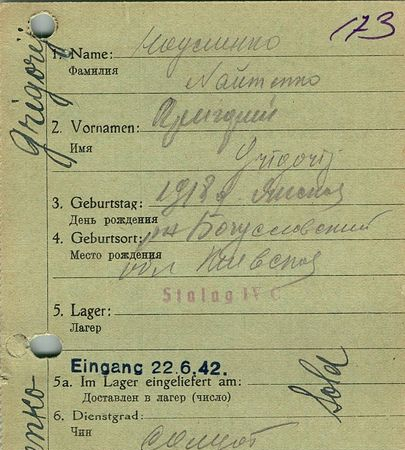 173
Grigorij
1. Name:
Фамилия
2. Vornamen: Григорий
Имя
Grigorij
3. Geburtstag: 1918 г.
День рождения
4. Geburtsort: рн Богуславский
Место рождения
обл Киевская
Stalag IV C
5. Lager:
Лагерь
Eingang 22.6.42.
5a. Im Lager eingeliefert am:
Доставлен в лагерь (число)
Sold
6. Dienstgrad: солдат
Чин
enko-